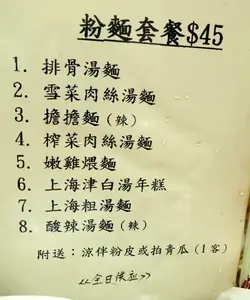 粉麵套餐$45
1. 排骨湯麵
2. 雪菜肉絲湯麵
3. 擔擔麵(辣)
4. 榨菜肉絲湯麵
5. 嫩雞煨麵
6. 上海津白湯年糕
7. 上海粗湯麵
8. 酸辣湯麵(辣)
附送：涼伴粉皮或拍青瓜(1客)
<<全日供应>>